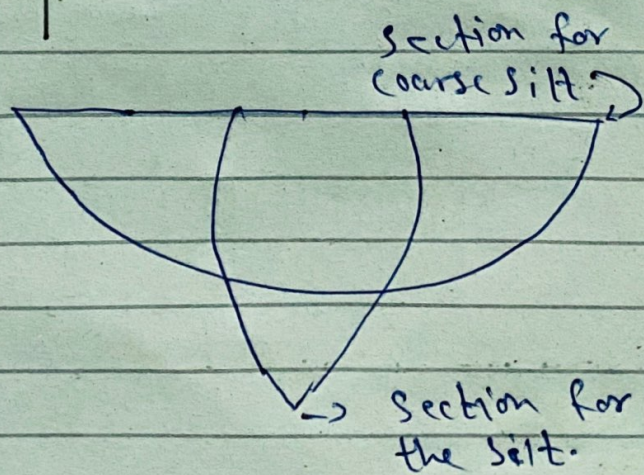 section for
coarse silt.
section for
the silt.